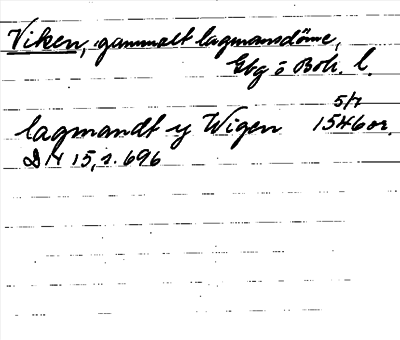 Viken, gammalt lagmansdöme,
Gbg o Boh. l.
5/1
lagmandt y Wigen 1546 or.
DN 15, s. 696